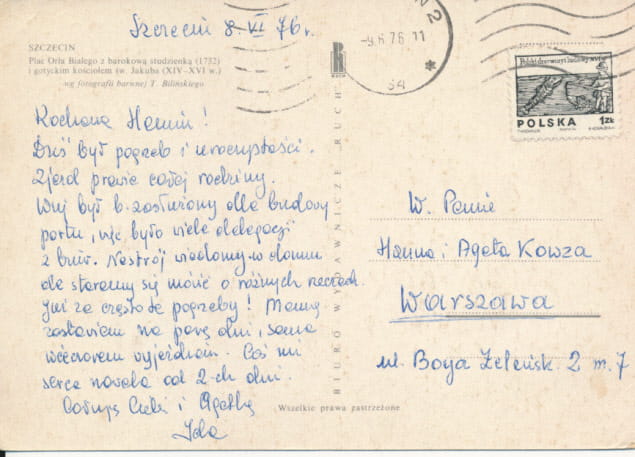 Szczecin 8-VI 76 r.
SZCZECIN
Plac Orła Białego z barokową studzienką (1732)
i gotyckim kościołem św. Jakuba (XIV-XVI w.)
wg fotografii barwnej T. Bilińskiego
Kochana Haniu!
Dziś był pogrzeb i uroczystości.
Zjazd prawie całej rodziny.
Wuj był b. zasłużony dla budowy
portu, więc było wiele delegacji
z kwiat. Nastrój wiadomy w domu
ale staramy się mówić o różnych rzeczach.
Już za częste te pogrzeby! Mamę
zostawiam na parę dni, sama
wieczorem wyjeżdżam. Coś mi
serce nawala od 2-ch dni.
Całuję Ciebie i Agatkę
Ida
BIURO WYDAWNICZE RUCH
RUCH
Wszelkie prawa zastrzeżone
-9.6.76 11
2
POLSKA 1zł
W. Panie
Hanna i Agata Kowza
Warszawa
ul. Boya Żeleńsk. 2 m. 7